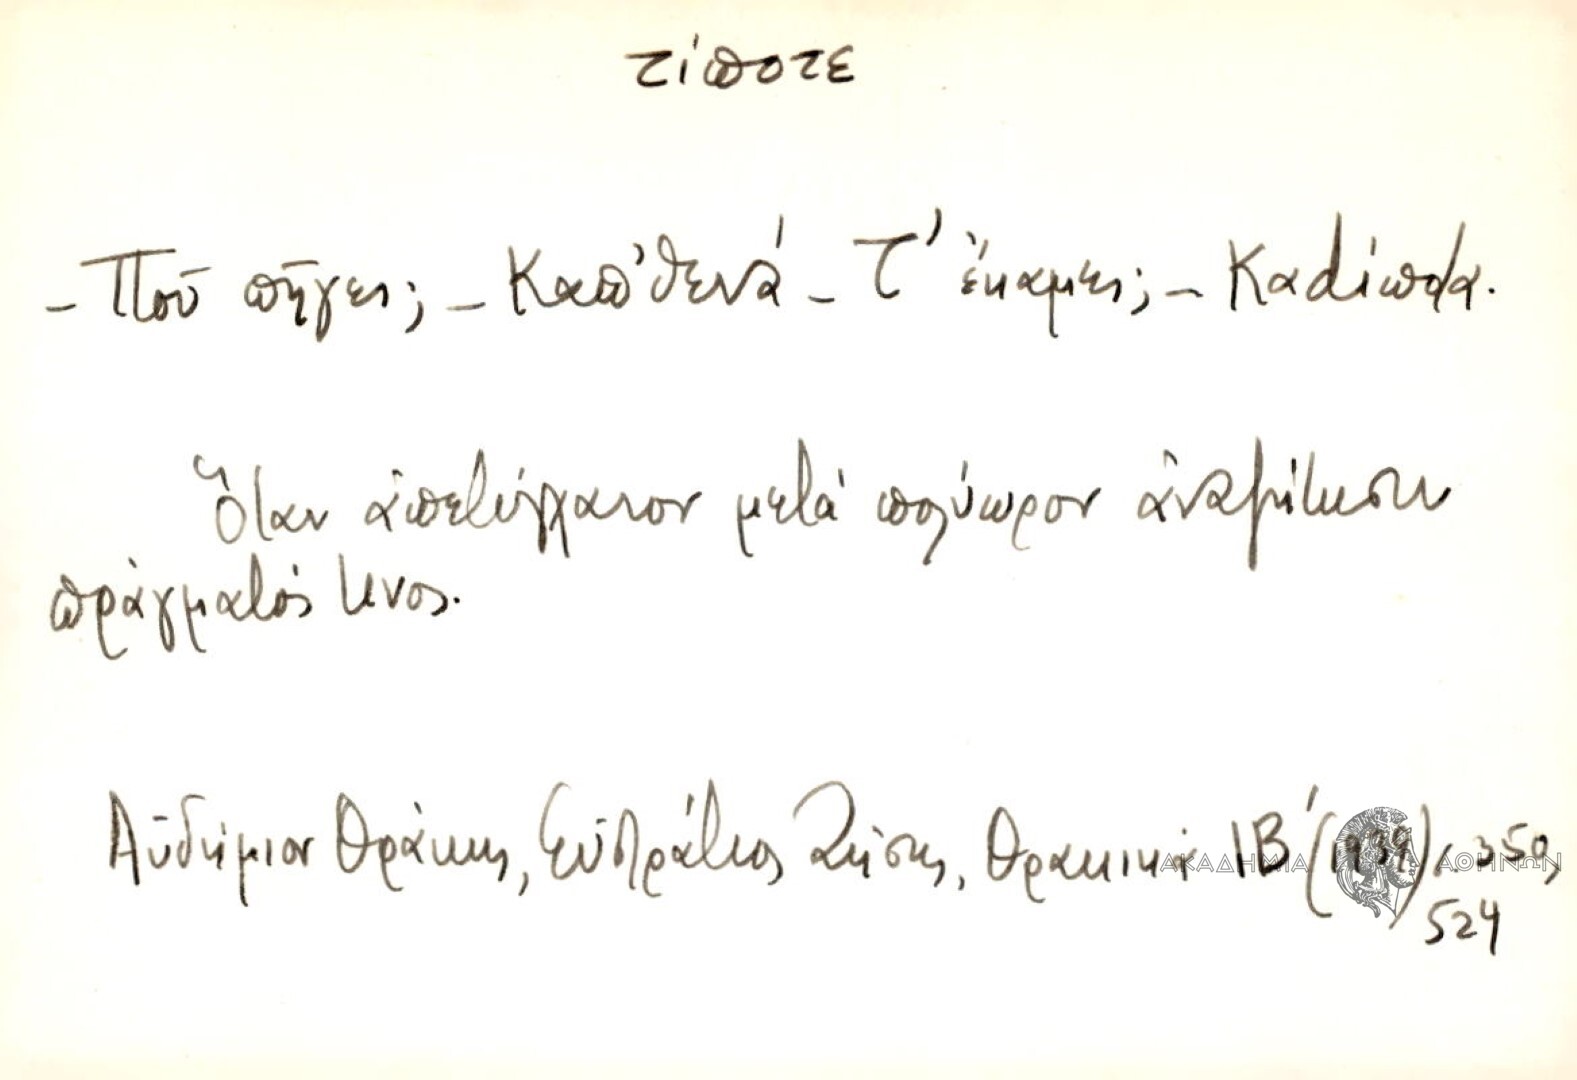 τίποτε
- Ποῦ πῆγες; - Καπ'θενά - Τ' ἔκαμες; - Καdίποdα.
Ὅταν ἀπετύγχανον μετά πολύωρον ἀναζήτησιν
πράγματός τινος.
Αὐδήμιον Θράκης, Εὐστράτιος Ζήσης, Θρακικά ΙΒ΄ (1939) σ. 350,
524
ΑΚΑΔΗΜΙΑ ΑΘΗΝΩΝ